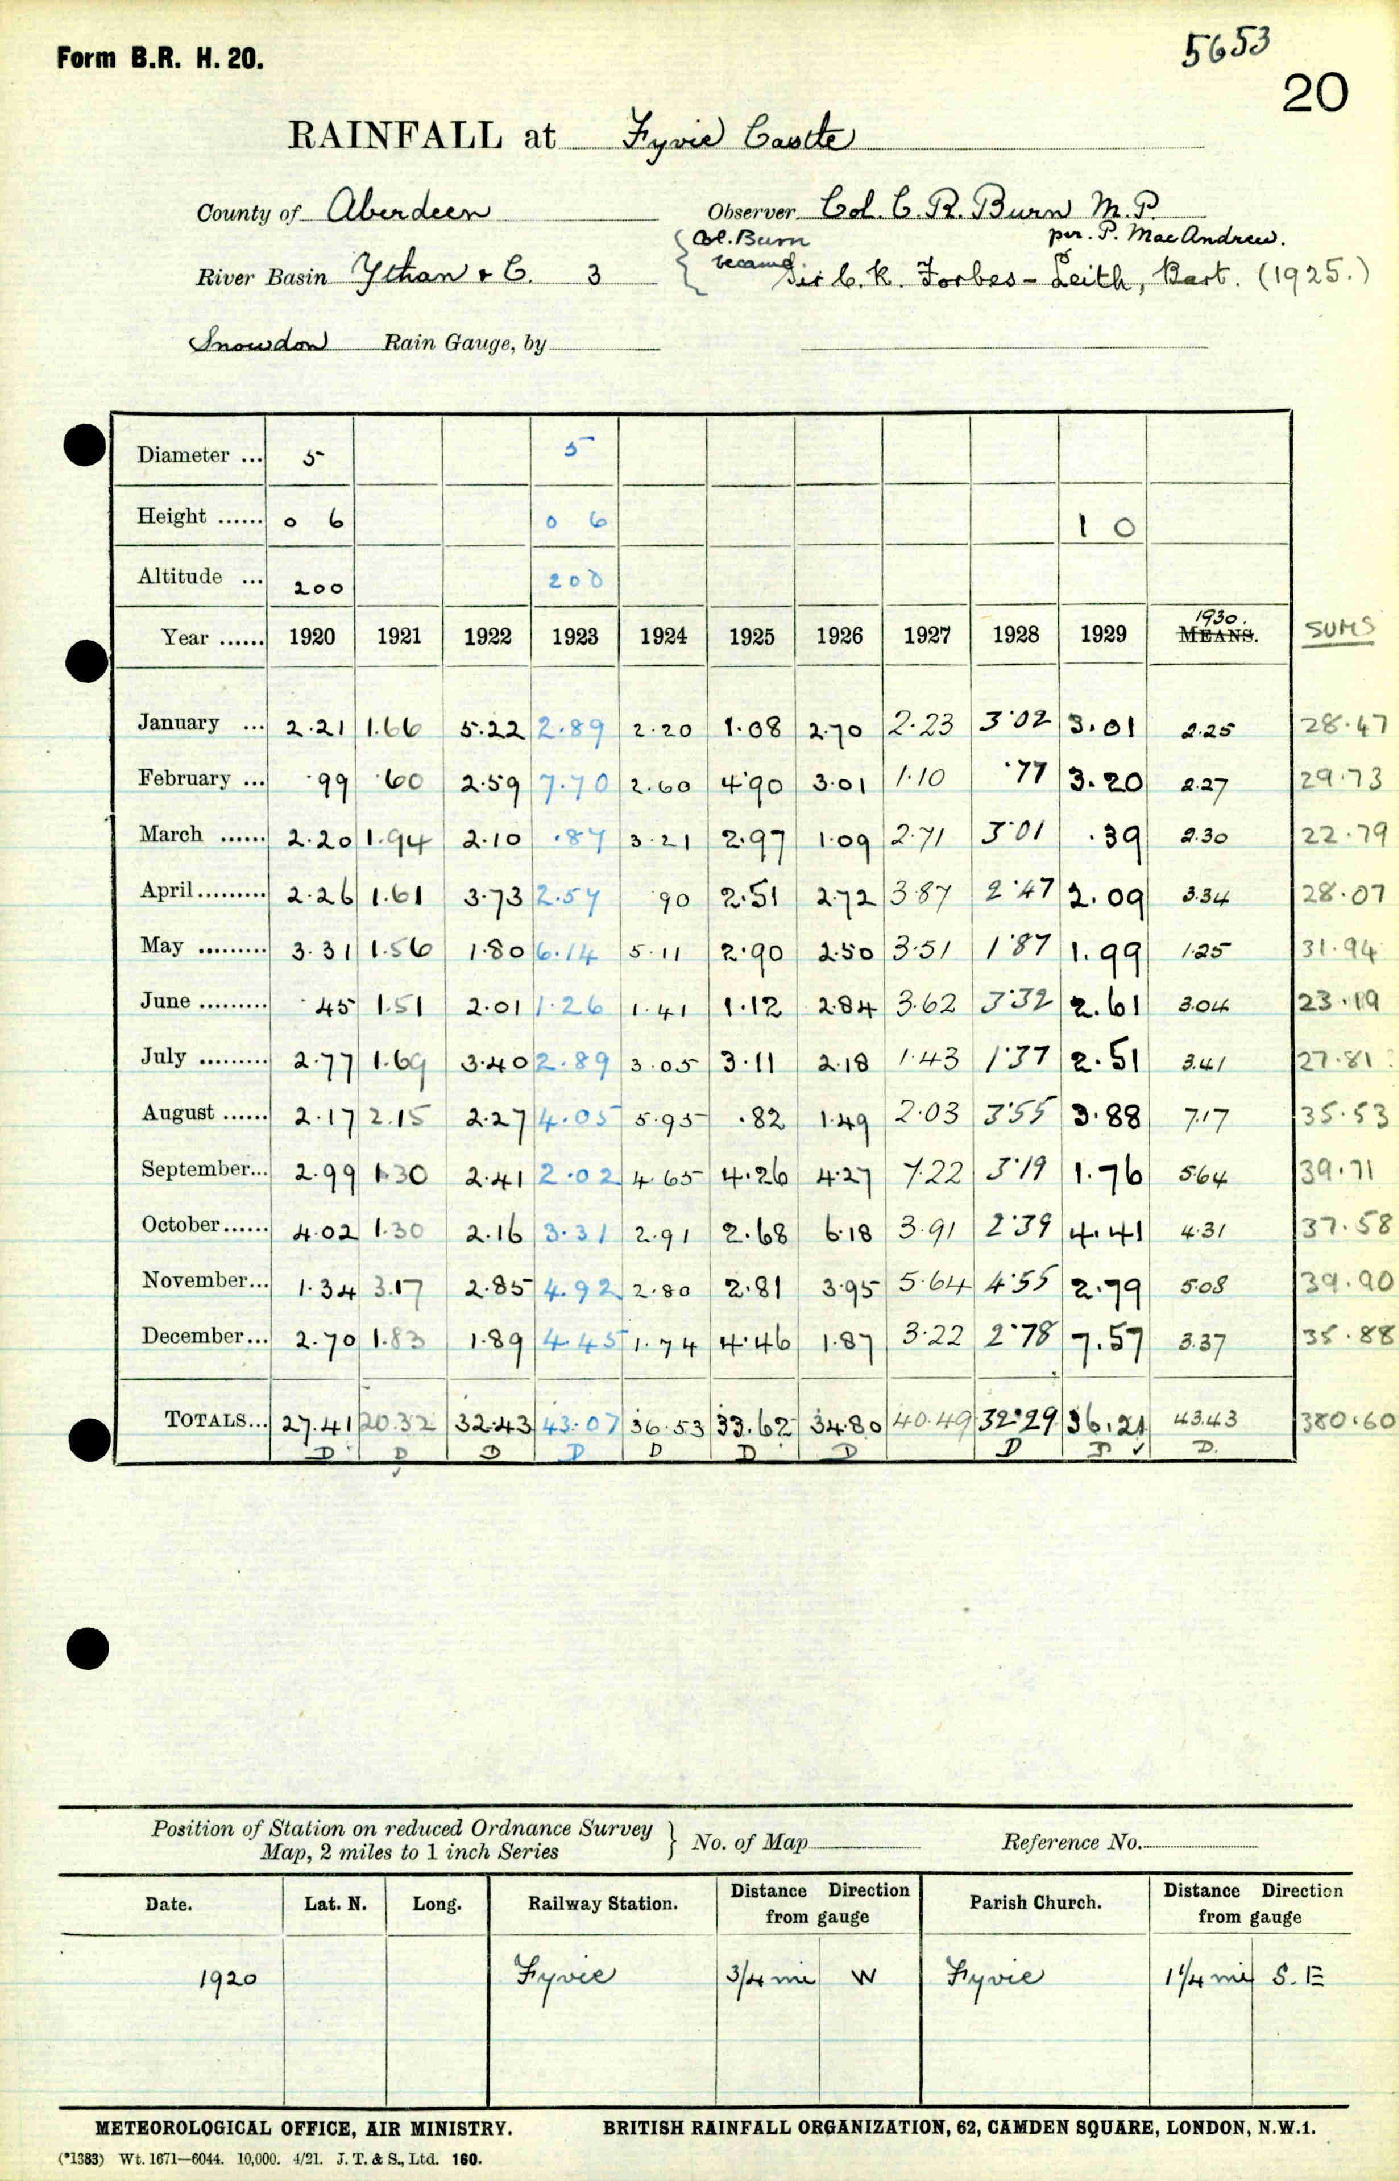 Form B.R. H. 20.
5653
20
RAINFALL at Fyvie Castle
County of Aberdeen Observer Col. C. R. Burn M.P.
{ Col. Burn per. P. MacAndrew.
River Basin Ythan & C. 3 became Sir C. R. Forbes-Leith, Bart. (1925.)
Snowdon Rain Gauge, by
Diameter ... 5 5
Height ...... 0 6 0 6 1 0
Altitude ... 200 200
1930.
Year ...... 1920 1921 1922 1923 1924 1925 1926 1927 1928 1929 MEANS. SUMS
January ... 2.21 1.66 5.22 2.89 2.20 1.08 2.70 2.23 3.02 3.01 2.25 28.47
February ... .99 .60 2.59 7.70 2.60 4.90 3.01 1.10 .77 3.20 2.27 29.73
March ...... 2.20 1.94 2.10 .87 3.21 2.97 1.09 2.71 3.01 .39 2.30 22.79
April ......... 2.26 1.61 3.73 2.57 90 2.51 2.72 3.87 2.47 2.09 3.34 28.07
May ......... 3.31 1.56 1.80 6.14 5.11 2.90 2.50 3.51 1.87 1.99 1.25 31.94
June ......... .45 1.51 2.01 1.26 1.41 1.12 2.84 3.62 3.32 2.61 3.04 23.19
July ......... 2.77 1.69 3.40 2.89 3.05 3.11 2.18 1.43 1.37 2.51 3.41 27.81
August ...... 2.17 2.15 2.27 4.05 5.95 .82 1.49 2.03 3.55 3.88 7.17 35.53
September... 2.99 1.30 2.41 2.02 4.65 4.26 4.27 7.22 3.19 1.76 5.64 39.71
October ...... 4.02 1.30 2.16 3.31 2.91 2.68 6.18 3.91 2.39 4.41 4.31 37.58
November... 1.34 3.17 2.85 4.92 2.80 2.81 3.95 5.64 4.55 2.79 5.08 39.90
December... 2.70 1.83 1.89 4.45 1.74 4.46 1.87 3.22 2.78 7.57 3.37 35.88
TOTALS... 27.41 20.32 32.43 43.07 36.53 33.62 34.80 40.49 32.29 36.21 43.43 380.60
D D D D D D D D D ✓ D.
✓
Position of Station on reduced Ordnance Survey
Map, 2 miles to 1 inch Series } No. of Map Reference No.
Date. Lat. N. Long. Railway Station. Distance Direction from gauge Parish Church. Distance Direction from gauge
1920 Fyvie 3/4 mi W Fyvie 1 1/4 mi S. E
METEOROLOGICAL OFFICE, AIR MINISTRY. BRITISH RAINFALL ORGANIZATION, 62, CAMDEN SQUARE, LONDON, N.W.1.
(*1383) Wt. 1671—6044. 10,000. 4/21. J. T. & S., Ltd. 160.